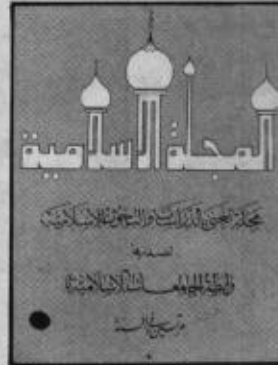 المجلة الإسلامية
مجلة تعنى بالدراسات والبحوث الإسلامية
تصدرها
رابطة الجامعات الإسلامية
مرتين في السنة